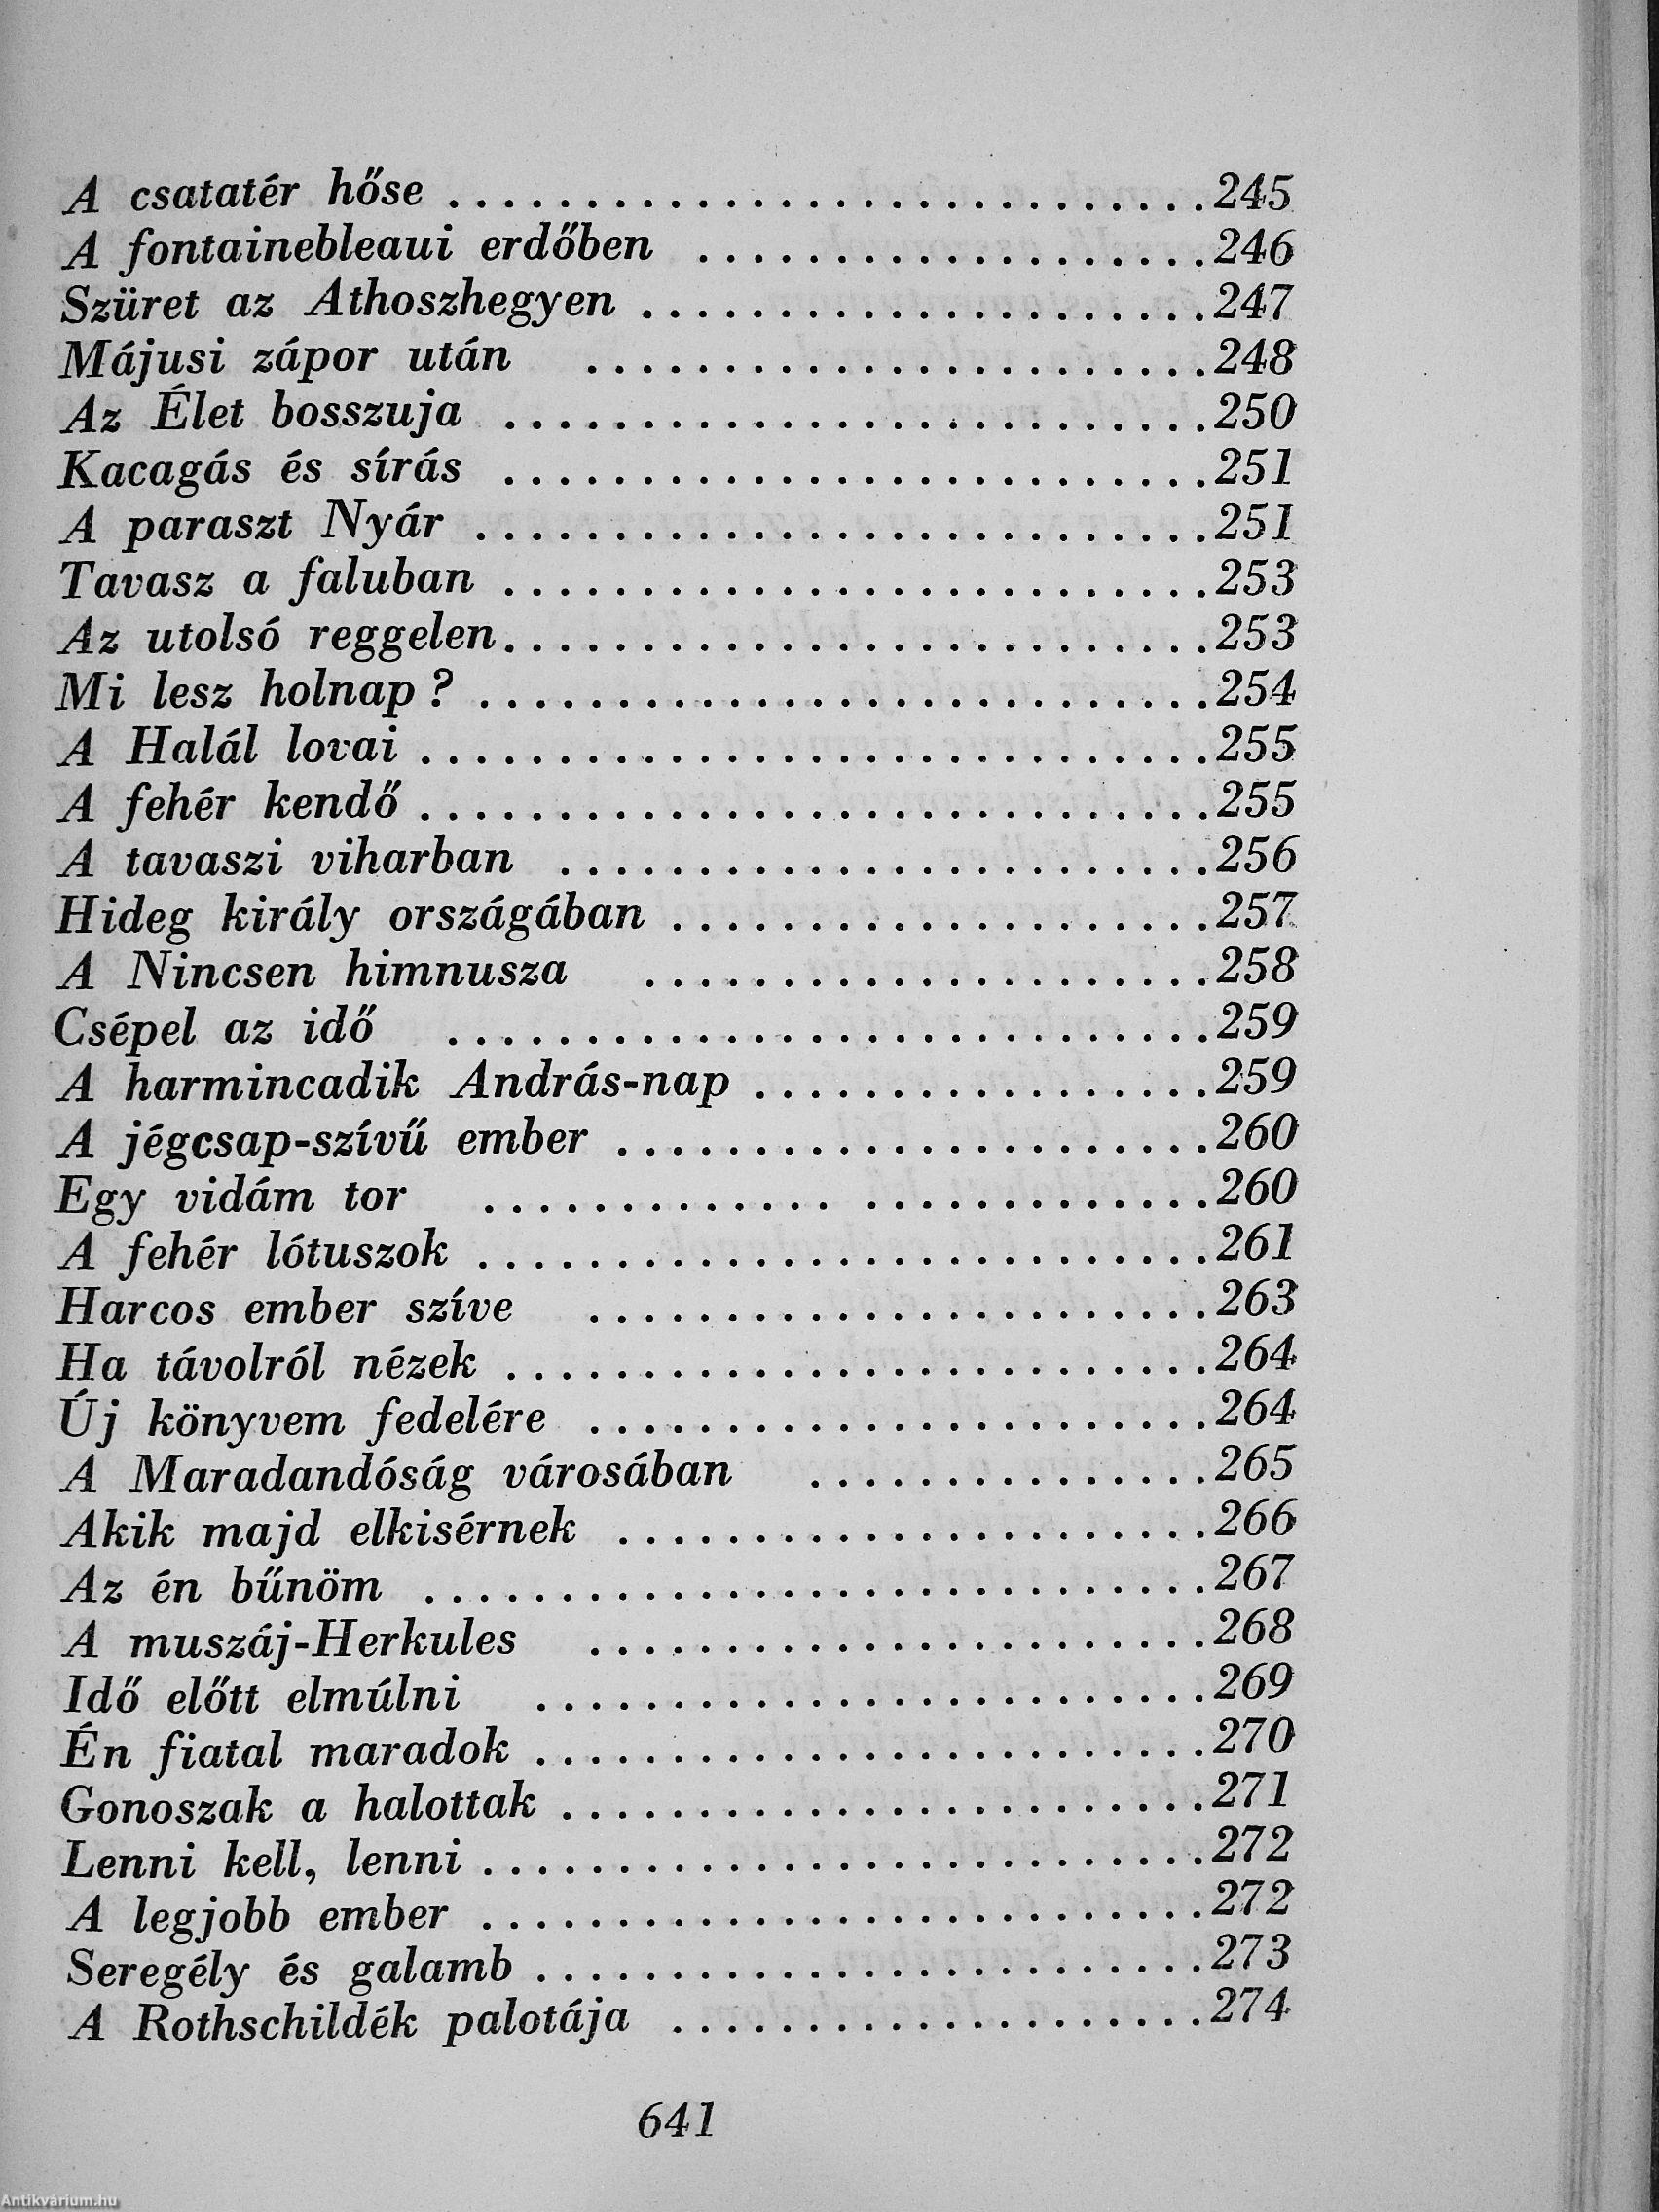 A csatatér hőse . . . . . . . . . . . . . . . . . . . . . . . . . . . . 245
A fontainebleaui erdőben . . . . . . . . . . . . . . . . . . . 246
Szüret az Athoszhegyen . . . . . . . . . . . . . . . . . . . . . 247
Májusi zápor után . . . . . . . . . . . . . . . . . . . . . . . 248
Az Élet bosszuja . . . . . . . . . . . . . . . . . . . . . . . . . . 250
Kacagás és sírás . . . . . . . . . . . . . . . . . . . . . . . . . . 251
A paraszt Nyár . . . . . . . . . . . . . . . . . . . . . . . . . . . 251
Tavasz a faluban . . . . . . . . . . . . . . . . . . . . . . . . . . 253
Az utolsó reggelen . . . . . . . . . . . . . . . . . . . . . . . . . . 253
Mi lesz holnap ? . . . . . . . . . . . . . . . . . . . . . . . . . . . 254
A Halál lovai . . . . . . . . . . . . . . . . . . . . . . . . . . . . . 255
A fehér kendő . . . . . . . . . . . . . . . . . . . . . . . . . . . . . 255
A tavaszi viharban . . . . . . . . . . . . . . . . . . . . . . . . 256
Hideg király országában . . . . . . . . . . . . . . . . . . . . 257
A Nincsen himnusza . . . . . . . . . . . . . . . . . . . . . 258
Csépel az idő . . . . . . . . . . . . . . . . . . . . . . . . . . . . 259
A harmincadik András-nap . . . . . . . . . . . . . . . . . 259
A jégcsap-szívű ember . . . . . . . . . . . . . . . . . . . . . . 260
Egy vidám tor . . . . . . . . . . . . . . . . . . . . . . . . . . 260
A fehér lótuszok . . . . . . . . . . . . . . . . . . . . . . . . . . . 261
Harcos ember szíve . . . . . . . . . . . . . . . . . . . . . . . 263
Ha távolról nézek . . . . . . . . . . . . . . . . . . . . . . . . . . 264
Új könyvem fedelére . . . . . . . . . . . . . . . . . . . . . . . 264
A Maradandóság városában . . . . . . . . . . . . . . . 265
Akik majd elkisérnek . . . . . . . . . . . . . . . . . . . . . . 266
Az én bűnöm . . . . . . . . . . . . . . . . . . . . . . . . . . . . . 267
A muszáj-Herkules . . . . . . . . . . . . . . . . . . . . . . . 268
Idő előtt elmúlni . . . . . . . . . . . . . . . . . . . . . . . . . 269
Én fiatal maradok . . . . . . . . . . . . . . . . . . . . . . . . . 270
Gonoszak a halottak . . . . . . . . . . . . . . . . . . . . . . . . 271
Lenni kell, lenni . . . . . . . . . . . . . . . . . . . . . . . . . . . 272
A legjobb ember . . . . . . . . . . . . . . . . . . . . . . . . . . . 272
Seregély és galamb . . . . . . . . . . . . . . . . . . . . . . . . . 273
A Rothschildék palotája . . . . . . . . . . . . . . . . . . . . 274
641
Antikvárium.hu